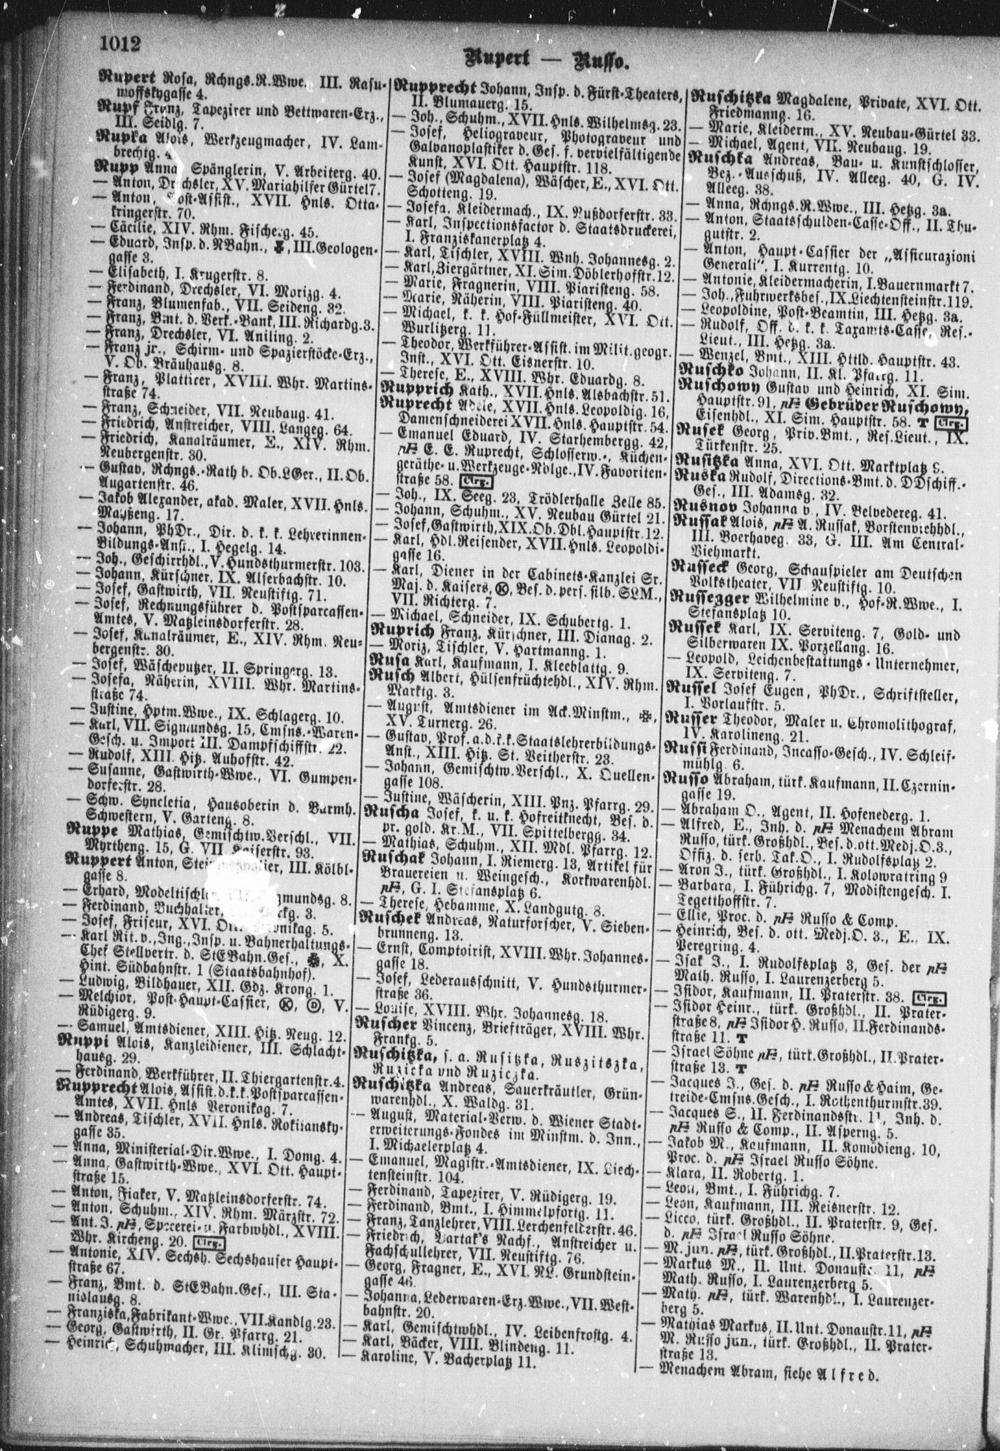 1012
Rupert — Russo.
Rupert Rosa, Rchngs.R.Wwe. III. Rasu-
moffskygasse 4.
Rupf Franz, Tapezirer und Bettwaren-Erz.,
III. Seidlg. 7.
Rupka Alois, Werkzeugmacher, IV. Lam-
brechtg.
Rupp Anna Spänglerin, V. Arbeiterg. 40.
— Anton, Drechsler, XV. Mariahilfer Gürtel 7.
— Anton, Post-Assist., XVII. Hnls. Otta-
kringerstr. 70.
— Cäcilie, XIV. Rhm. Fischerg. 45.
— Eduard, Insp. d. NBahn., III. Geologen-
gasse 3.
— Elisabeth, I. Krugerstr. 8.
— Ferdinand, Drechsler, VI. Morizg. 4.
— Franz, Blumenfab., VII. Seideng. 32.
— Franz, Bmt. d. Verk.-Bank, III. Richardg. 3.
— Franz, Drechsler, VI. Aniling. 2.
— Franz jr., Schirm- und Spazierstöcke-Erz.,
V. Ob. Bräuhausg. 8.
— Franz, Platticer, XVIII. Whr. Martins-
straße 74.
— Franz, Schneider, VII. Neubaug. 41.
— Friedrich, Anstreicher, VIII. Langeg. 64.
— Friedrich, Kanalräumer, E., XIV. Rhm.
Neubergenstr. 30.
— Gustav, Rchngs.-Rath b. Ob.LGer., II. Ob.
Augartenstr. 46.
— Jakob Alexander, akad. Maler, XVII. Hnls.
Mayßeng. 17.
— Johann, PhDr., Dir. d. k. k. Lehrerinnen-
Bildungs-Anst., I. Hegelg. 14.
— Joh., Geschirrhdl., V. Hundsthurmerstr. 103.
— Johann, Kürschner, IX. Alserbachstr. 10.
— Josef, Gastwirth, VII. Neustiftg. 71.
— Josef, Rechnungsführer d. Postsparcassen-
Amtes, V. Matzleinsdorferstr. 28.
— Josef, Kanalräumer, E., XIV. Rhm. Neu-
bergenstr. 30.
— Josef, Wäscheputzer, II. Springerg. 13.
— Josefa, Näherin, XVIII. Whr. Martins-
straße 74.
— Justine, Hptm.Wwe., IX. Schlagerg. 10.
— Karl, VII. Sigmundsg. 15, Cmsns.-Waren-
Gesch. u. Import III. Dampfschiffstr. 22.
— Rudolf, XIII. Hitz. Auhofstr. 42.
— Susanne, Gastwirth-Wwe., VI. Gumpen-
dorferstr. 28.
— Schw. Syncletia, Hausoberin d. Barmh.
Schwestern, V. Garteng. 8.
Ruppe Mathias, Gemischtw.Verschl., VII.
Myrtheng. 15, G. VII. Kaiserstr. 93.
Ruppert Anton, III. Kölbl-
gasse 8.
— Erhard, Modeltischler gmundsg. 8.
— Ferdinand, Buchhalter, ckg. 3.
— Josef, Friseur, XVI. Ott. Veronikag. 5.
— Karl Rit. v., Ing., Insp. u. Bahnerhaltungs-
Chef Stellvertr. d. StEBahn.Ges., X.
Hint. Südbahnstr. 1 (Staatsbahnhof).
— Ludwig, Bildhauer, XII. Gdz. Krong. 1.
— Melchior, Post-Haupt-Cassier, Ⓚ, Ⓓ, V.
Rüdigerg. 9.
— Samuel, Amtsdiener, XIII. Hitz. Neug. 12.
Ruppi Alois, Kanzleidiener, III. Schlacht-
hausg. 29.
— Ferdinand, Werkführer, II. Thiergartenstr. 4.
Rupprecht Alois, Assist. d. k. k. Postsparcassen-
Amtes, XVII. Hnls Veronikag. 7.
— Andreas, Tischler, XVII. Hnls. Rokitansky-
gasse 35.
— Anna, Ministerial-Dir.Wwe., I. Domg. 4.
— Anna, Gastwirth-Wwe., XVI. Ott. Haupt-
straße 15.
— Anton, Fiaker, V. Matzleinsdorferstr. 74.
— Anton, Schuhm., XIV. Rhm. Märzstr. 72.
— Ant. J. Spezerei- u. Farbwhdl., XVIII.
Whr. Kircheng. 20. Clrg.
— Antonie, XIV. Sechsh. Sechshauser Haupt-
straße 67.
— Franz, Bmt. d. StEBahn.Ges., III. Sta-
nislausg. 8.
— Franziska, Fabrikant-Wwe., VII. Kandlg. 23.
— Georg, Gastwirth, II. Gr. Pfarrg. 21.
— Heinrich, Schuhmacher, III. Klimschg. 30.
Rupprecht Johann, Insp. d. Fürst-Theaters,
II. Blumauerg. 15.
— Joh., Schuhm., XVII. Hnls. Wilhelmsg. 23.
— Josef, Heliograveur, Photograveur und
Galvanoplastiker d. Ges. f. vervielfältigende
Kunst, XVI. Ott. Hauptstr. 118.
— Josef (Magdalena), Wäscher, E., XVI. Ott.
Schotteng. 19.
— Josefa, Kleidermach., IX. Nußdorferstr. 33.
— Karl, Inspectionsfactor d. Staatsdruckerei,
I. Franziskanerplatz 4.
— Karl, Tischler, XVIII. Wnh. Johannesg. 2.
— Karl, Ziergärtner, XI. Sim. Döblerhofstr. 12.
— Marie, Fragnerin, VIII. Piaristeng. 58.
— Marie, Näherin, VIII. Piaristeng. 40.
— Michael, k. k. Hof-Füllmeister, XVI. Ott.
Wurlitzerg. 11.
— Theodor, Werkführer-Assist. im Milit.geogr.
Inst., XVI. Ott. Eisnerstr. 10.
— Therese, E., XVIII. Whr. Eduardg. 8.
Rupprich Kath., XVII. Hnls. Alsbachstr. 51.
Ruprecht Adele, XVII. Hnls. Leopoldig. 16,
Damenschneiderei XVII. Hnls. Hauptstr. 54.
— Emanuel Eduard, IV. Starhembergg. 42,
E. E. Ruprecht, Schlosserw., Küchen-
geräthe- u. Werkzeuge-Ndlge., IV. Favoriten-
straße 58. Clrg.
— Joh., IX. Seeg. 23, Trödlerhalle Zelle 85.
— Johann, Schuhm., XV. Neubau Gürtel 21.
— Josef, Gastwirth, XIX. Ob. Dbl. Hauptstr. 12.
— Karl, Hdl.Reisender, XVII. Hnls. Leopoldi-
gasse 16.
— Karl, Diener in der Cabinets-Kanzlei Sr.
Maj. d. Kaisers, Ⓚ, Bes. d. pers. silb. SLM.,
VII. Richterg. 7.
— Michael, Schneider, IX. Schubertg. 1.
Ruprich Franz, Kürschner, III. Dianag. 2.
— Moriz, Tischler, V. Hartmanng. 1.
Rusa Karl, Kaufmann, I. Kleeblattg. 9.
Rusch Albert, Hülsenfrüchtehdl., XIV. Rhm.
Marktg. 3.
— August, Amtsdiener im Ack.Minstm.,
XV. Turnerg. 26.
— Gustav, Prof. a. d. k. k. Staatslehrerbildungs-
Anst., XIII. Hitz. St. Veitherstr. 23.
— Johann, Gemischtw.Verschl., X. Quellen-
gasse 108.
— Justine, Wäscherin, XIII. Pnz. Pfarrg. 29.
Ruscha Josef, k. u. k. Hofreitknecht, Bes. d.
pr. gold. Kr.M., VII. Spittelbergg. 34.
— Mathias, Schuhm., XII. Mdl. Pfarrg. 12.
Ruschak Johann, I. Riemerg. 13, Artikel für
Brauereien u. Weingesch., Korkwarenhdl.
G. I. Stefansplatz 6.
— Therese, Hebamme, X. Landgutg. 8.
Ruschek Andreas, Naturforscher, V. Sieben-
brunneng. 13.
— Ernst, Comptoirist, XVIII. Whr. Johannes-
gasse 18.
— Josef, Lederausschnitt, V. Hundsthurmer-
straße 36.
— Louise, XVIII. Whr. Johannesg. 18.
Ruscher Vincenz, Briefträger, XVIII. Whr.
Frankg. 5.
Ruschitzka, s. a. Rusitzka, Ruszitszka,
Ruzicka und Ruziczka.
Ruschitzka Andreas, Sauerkräutler, Grün-
warenhdl., X. Waldg. 31.
— August, Material-Verw. d. Wiener Stadt-
erweiterungs-Fondes im Minstm. d. Inn.,
I. Michaelerplatz 4.
— Emanuel, Magistr.-Amtsdiener, IX. Liech-
tensteinstr. 104.
— Ferdinand, Tapezirer, V. Rüdigerg. 19.
— Ferdinand, Bmt., I. Himmelpfortg. 11.
— Franz, Tanzlehrer, VIII. Lerchenfelderstr. 46.
— Friedrich, Bartak's Nachf., Anstreicher u.
Fachschullehrer, VII. Neustiftg. 76.
— Georg, Fragner, E., XVI. NL. Grundstein-
gasse 46.
— Johanna, Lederwaren-Erz.Wwe., VII. West-
bahnstr. 20.
— Karl, Gemischtwhdl., IV. Leibenfrostg. 4.
— Karl, Bäcker, VIII. Blindeng. 11.
— Karoline, V. Bacherplatz 11.
Ruschitzka Magdalene, Private, XVI. Ott.
Friedmanng. 16.
— Marie, Kleiderm., XV. Neubau-Gürtel 33.
— Michael, Agent, VII. Neubaug. 19.
Ruschka Andreas, Bau- u. Kunstschlosser,
Bez.-Ausschuß, IV. Alleeg. 40, G. IV.
Alleeg. 38.
— Anna, Rchngs.R.Wwe., III. Hetzg. 3a.
— Anton, Staatsschulden-Casse-Off., II. Thu-
gutstr. 2.
— Anton, Haupt-Cassier der „Assicurazioni
Generali", I. Kurrentg. 10.
— Antonie, Kleidermacherin, I. Bauernmarkt 7.
— Joh., Fuhrwerksbes., IX. Liechtensteinstr. 119.
— Leopoldine, Post-Beamtin, III. Hetzg. 3a.
— Rudolf, Off. d. k. k. Taxamts-Casse, Res.-
Lieut., III. Hetzg. 3a.
— Wenzel, Bmt., XIII. Httld. Hauptstr. 43.
Ruschko Johann, II. Kl. Pfarrg. 11.
Ruschowy Gustav und Heinrich, XI. Sim.
Hauptstr. 91, Gebrüder Ruschowy,
Eisenhdl., XI. Sim. Hauptstr. 58. T Clrg.
Rusek Georg, Priv.Bmt., Res.Lieut., IX.
Türkenstr. 25.
Rusitzka Anna, XVI. Ott. Marktplatz
Ruska Rudolf, Directions-Bmt. d. DDschiff.-
Ges., III. Adamsg. 32.
Rusnov Johanna v., IV. Belvedereg. 41.
Russak Alois, A. Russak, Borstenviehhdl.,
III. Boerhaveg. 33, G. III. Am Central-
Viehmarkt.
Russeck Georg, Schauspieler am Deutschen
Volkstheater, VII Neustiftg. 10.
Russegger Wilhelmine v., Hof-R.Wwe., I.
Stefansplatz 10.
Russek Karl, IX. Serviteng. 7, Gold- und
Silberwaren IX. Porzellang. 16.
— Leopold, Leichenbestattungs-Unternehmer,
IX. Serviteng. 7.
Russel Josef Eugen, PhDr., Schriftsteller,
I. Vorlaufstr. 5.
Russer Theodor, Maler u. Chromolithograf,
IV. Karolineng. 21.
Russi Ferdinand, Incasso-Gesch., IV. Schleif-
mühlg. 6.
Russo Abraham, türk. Kaufmann, II. Czernin-
gasse 19.
— Abraham O., Agent, II. Hofenederg. 1.
— Alfred, E., Inh. d. Menachem Abram
Russo, türk. Großhdl., Bes. d. ott. Medj.O. 3.,
Offiz. d. serb. Tak.O., I. Rudolfsplatz 2.
— Aron J., türk. Großhdl., I. Kolowratring 9
— Barbara, I. Führichg. 7, Modistengesch. I.
Tegetthoffstr. 7.
— Ellie, Proc. d. Russo & Comp.
— Heinrich, Bes. d. ott. Medj.O. 3., E., IX.
Peregring. 4.
— Isak J., I. Rudolfsplatz 3, Ges. der
Math. Russo, I. Laurenzerberg 5.
— Isidor, Kaufmann, II. Praterstr. 38. Clrg.
— Isidor Heinr., türk. Großhdl., II. Prater-
straße 8, Isidor H. Russo, II. Ferdinands-
straße 11. T
— Israel Söhne, türk. Großhdl., II. Prater-
straße 13. T
— Jacques J., Ges. d. Russo & Haim, Ge-
treide-Cmsns.Gesch., I. Rothenthurmstr. 39.
— Jacques S., II. Ferdinandsstr. 11, Inh. d.
Russo & Comp., II. Asperng. 5.
— Jakob M., Kaufmann, II. Komödieng. 10,
Proc. d. Israel Russo Söhne.
— Klara, II. Robertg. 1.
— Leon, Bmt., I. Führichg. 7.
— Leon, Kaufmann, III. Reisnerstr. 12.
— Licco, türk. Großhdl., II. Praterstr. 9, Ges.
d. Israel Russo Söhne.
— M. jun., türk. Großhdl., II. Praterstr. 13.
— Markus M., II. Unt. Donaustr. 11,
Math. Russo, I. Laurenzerberg 5.
— Math., türk. Warenhdl., I. Laurenzer-
berg 5.
— Mathias Markus, II. Unt. Donaustr. 11,
M. Russo jun., türk. Großhdl., II. Prater-
straße 13.
— Menachem Abram, siehe Alfred.